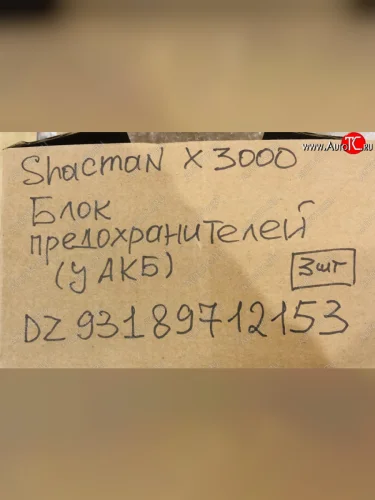 www.AutoTC.ru
Shacman X 3000
Блок
предохранителей
(у АКБ)
3шт
DZ 93189712153